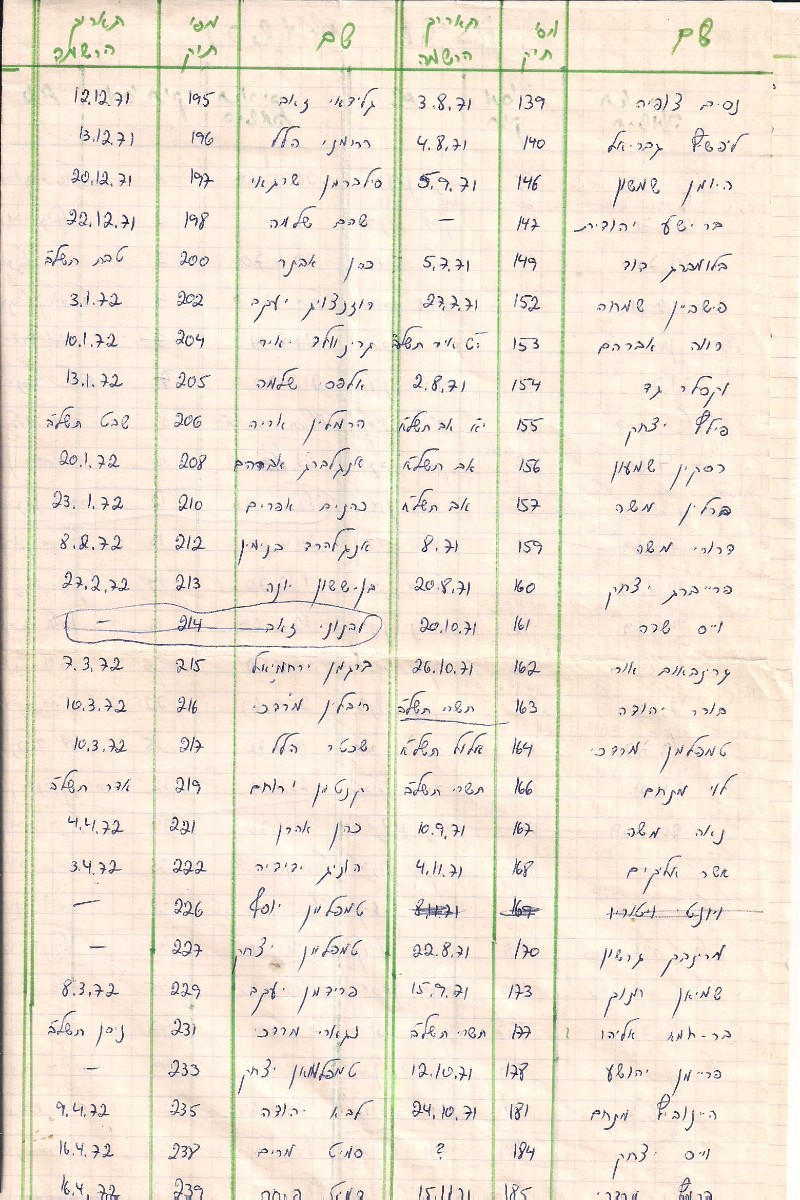 שם מס' תיק תאריך הרשמה שם מס' תיק תאריך הרשמה
נסים צופיה 139 3.8.71 גלידאי זאב 195 12.12.71
ליפשיץ גבריאל 140 4.8.71 רחמני הלל 196 13.12.71
היומן שמשון 146 5.9.71 סילברמן שרגאי 197 20.12.71
בר ישע יהודית 147 — שהם שלמה 198 22.12.71
בלומברג דוד 149 5.7.71 כהן אבנר 200 טבת תשל"ב
פישביין שמחה 152 27.7.71 רוזנצויג יעקב 202 3.1.72
רווה אברהם 153 י"ט אייר תשל"א גרינוולד יאיר 204 10.1.72
וקסלר גד 154 2.8.71 אלפסי שלמה 205 13.1.72
פילץ יצחק 155 י"א אב תשל"א הרמלין אריה 206 שבט תשל"ב
רסקין שמעון 156 אב תשל"א אנגלברג אברהם 208 20.1.72
ברלין משה 157 אב תשל"א כרנים אפרים 210 23.1.72
דרורי משה 159 8.71 אנגלהרד בנימין 212 8.2.72
פרייברג יצחק 160 20.8.71 בן-ששון יונה 213 27.2.72
וייס שרה 161 20.10.71 לבנוני זאב 214 —
גרינבאום אורי 162 26.10.71 ברגמן ירחמיאל 215 7.3.72
בורר יהודה 163 תשרי תשל"ב ריבלין מרדכי 216 10.3.72
טמפלמן מרדכי 164 אלול תשל"א שכטר הלל 217 10.3.72
לוי מנחם 166 תשרי תשל"ב קנטמן ירוחם 219 אדר תשל"ב
נאה משה 167 10.9.71 כהן אהרן 221 4.4.72
אשר אליקים 168 4.11.71 הוניג ידידיה 222 3.4.72
ויונטי ויטוריו 169 8.11.71 טמפליין יוסף 226 —
מרינבך גרשון 170 22.8.71 טמפליין יצחק 227 —
שמיאן חנוך 173 15.9.71 פרידמן יעקב 229 8.3.72
בר-חמא אליהו 177 תשרי תשל"ב נגארי מרדכי 231 ניסן תשל"ב
פריימן יהושע 178 12.10.71 טמפלמאן יצחק 233 —
היינוביץ מנחם 181 24.10.71 לביא יהודה 235 9.4.72
וייס יצחק 184 ? סמיט מרים 238 16.4.72
מרדכי 185 15.11.71 239 16.4.72